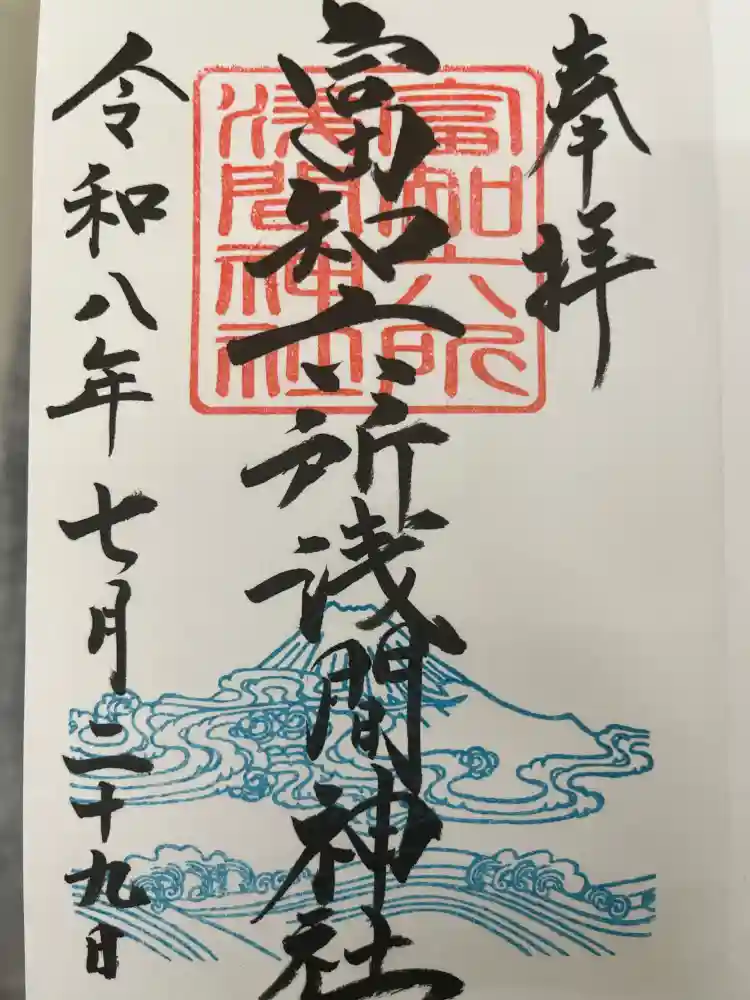 奉拝
富知六所浅間神社
富知六所
浅間神社
令和八年七月二十九日